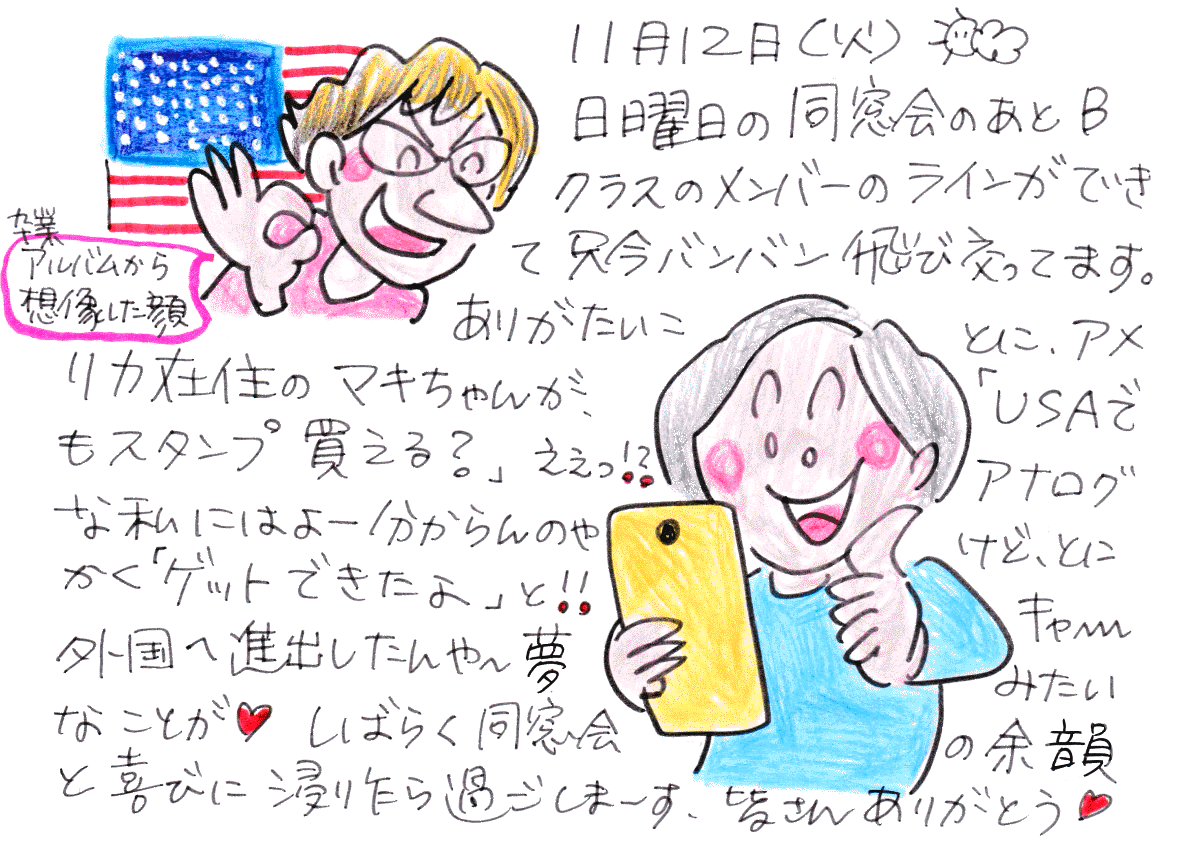 11月12日(火)
日曜日の同窓会のあとB
クラスのメンバーのラインができ
て只今バンバン飛び交ってます。
ありがたいことに、アメ
リカ在住のマキちゃんが、「USAで
もスタンプ買える?」ええっ!?アナログ
な私にはよー分からんのやけど、とに
かく「ゲットできたよ」と!!キャー
外国へ進出したんやー夢みたい
なことが しばらく同窓会の余韻
と喜びに浸りたら過ごしまーす、皆さんありがとう
卒業
アルバムから
想像した顔